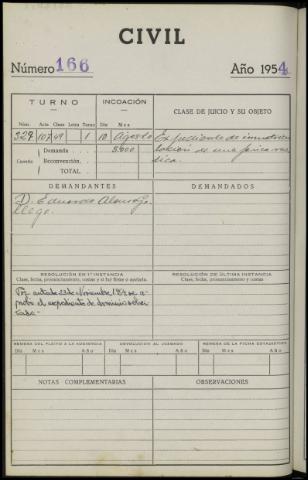 CIVIL
Número 166 Año 1954
TURNO
INCOACIÓN
CLASE DE JUICIO Y SU OBJETO
Núm. Acta Clase Letra Turno Día Mes
329 107 49 1 10 Agosto Expediente de inmatricu
Cuantía Demanda 5.000 lación de una finca rús
Reconvención. tica.
TOTAL
DEMANDANTES
DEMANDADOS
D. Eduardo Alonso
Llego.
RESOLUCIÓN EN 1ª INSTANCIA
Clase, fecha, pronunciamiento, costas y si fué firme o apelada.
RESOLUCIÓN DE ÚLTIMA INSTANCIA
Clase, fecha, pronunciamiento y costas
Por auto de 23 de Noviembre 1954 se a-
probó el expediente de dominio solici
tado-
REMESA DEL PLEITO A LA AUDIENCIA
DEVOLUCIÓN AL JUZGADO
REMESA DE LA FICHA ESTADÍSTICA
Día Mes Año Día Mes Año Día Mes Año
NOTAS COMPLEMENTARIAS
OBSERVACIONES